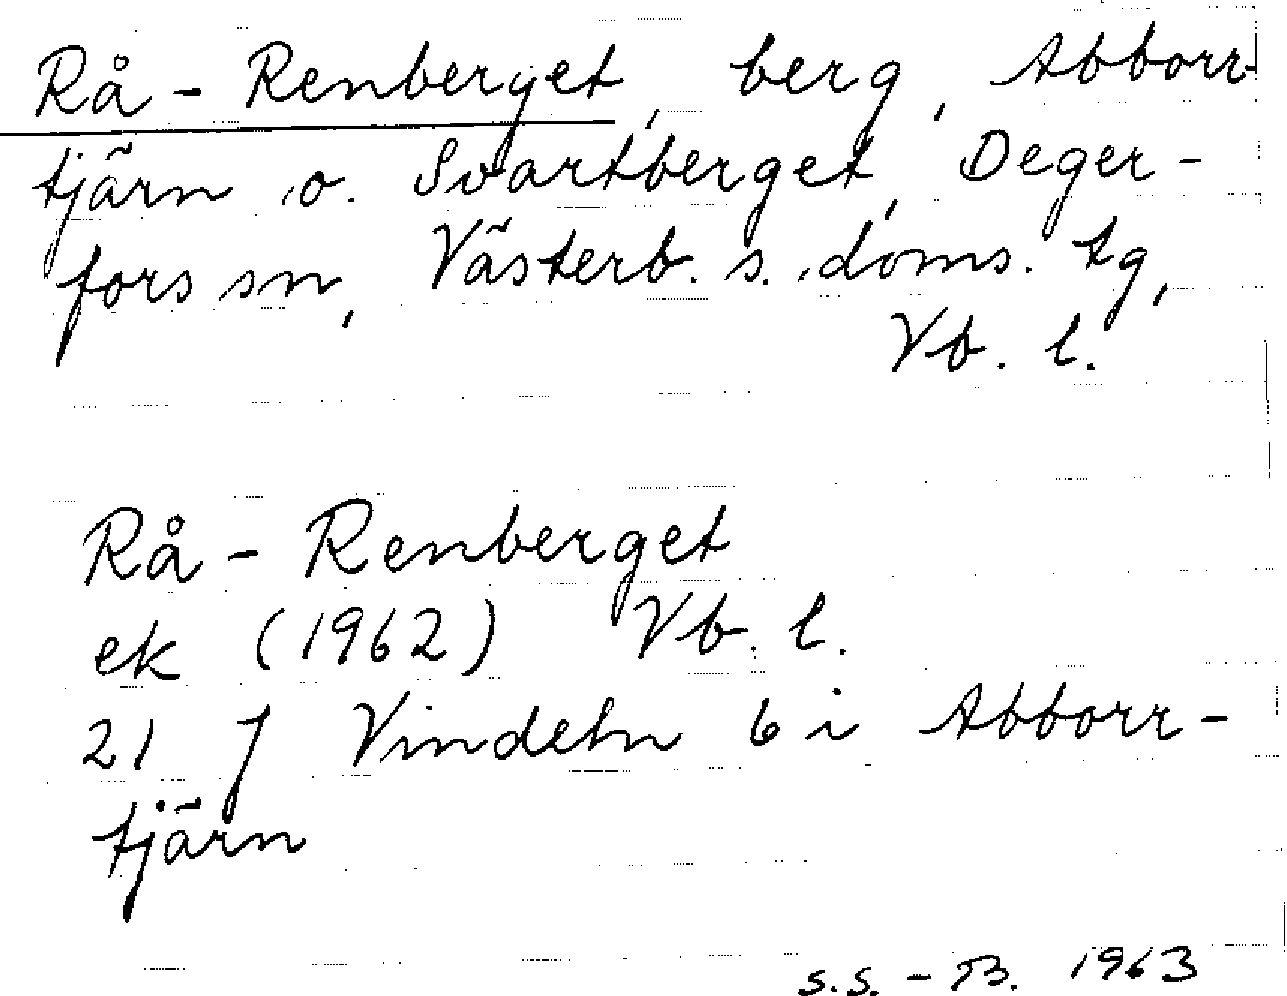 Rå-Renberget, berg, Abborr
tjärn o. Svartberget, Deger-
fors sn, Västerb. s. doms. tg,
Vb. l.
Rå-Renberget
ek (1962) Vb. l.
21 J Vindeln 6 i Abborr-
tjärn
S.S. - B. 1963